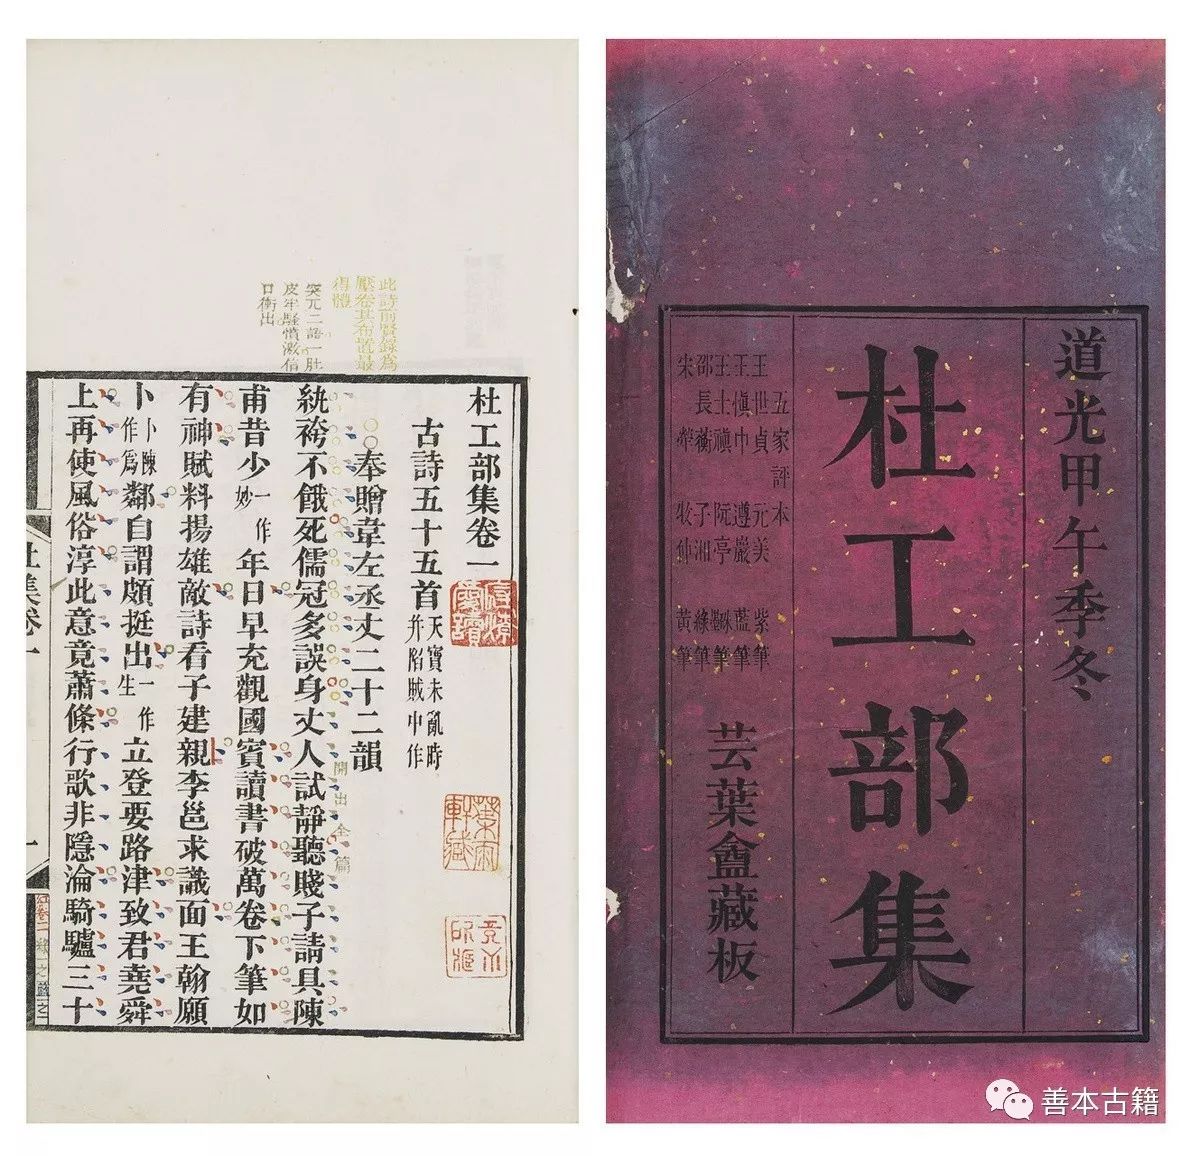 道光甲午季冬
杜工部集
五家評本
王世貞 元美 紫筆
王慎中 遵巖 藍筆
王士禛 阮亭 硃筆墨筆
邵長蘅 子湘 綠筆
宋犖 牧仲 黃筆
芸葉盦藏板
杜工部集卷一
古詩五十五首天寶未亂時并陷賊中作
奉贈韋左丞丈二十二韻
紈袴不餓死儒冠多誤身丈人試靜聽賤子請具陳
甫昔少一作妙年日早充觀國賓讀書破萬卷下筆如
有神賦料揚雄敵詩看子建親李邕求識面王翰願
卜卜陳作爲鄰自謂頗挺出一作生立登要路津致君堯舜
上再使風俗淳此意竟蕭條行歌非隱淪騎驢三十
此詩前賢錄爲
壓卷其布置最
得體
突兀二語一肚
皮牢騷憤激信
口衝出
開出全篇
杜集卷一
一
善本古籍